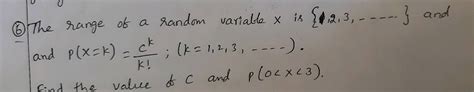 ⑥ The range of a random variable x is {1,2,3, -----} and
and P(X=k) = c^k/k! ; (k = 1,2,3, ----).
Find the value of C and P(0<x<3).